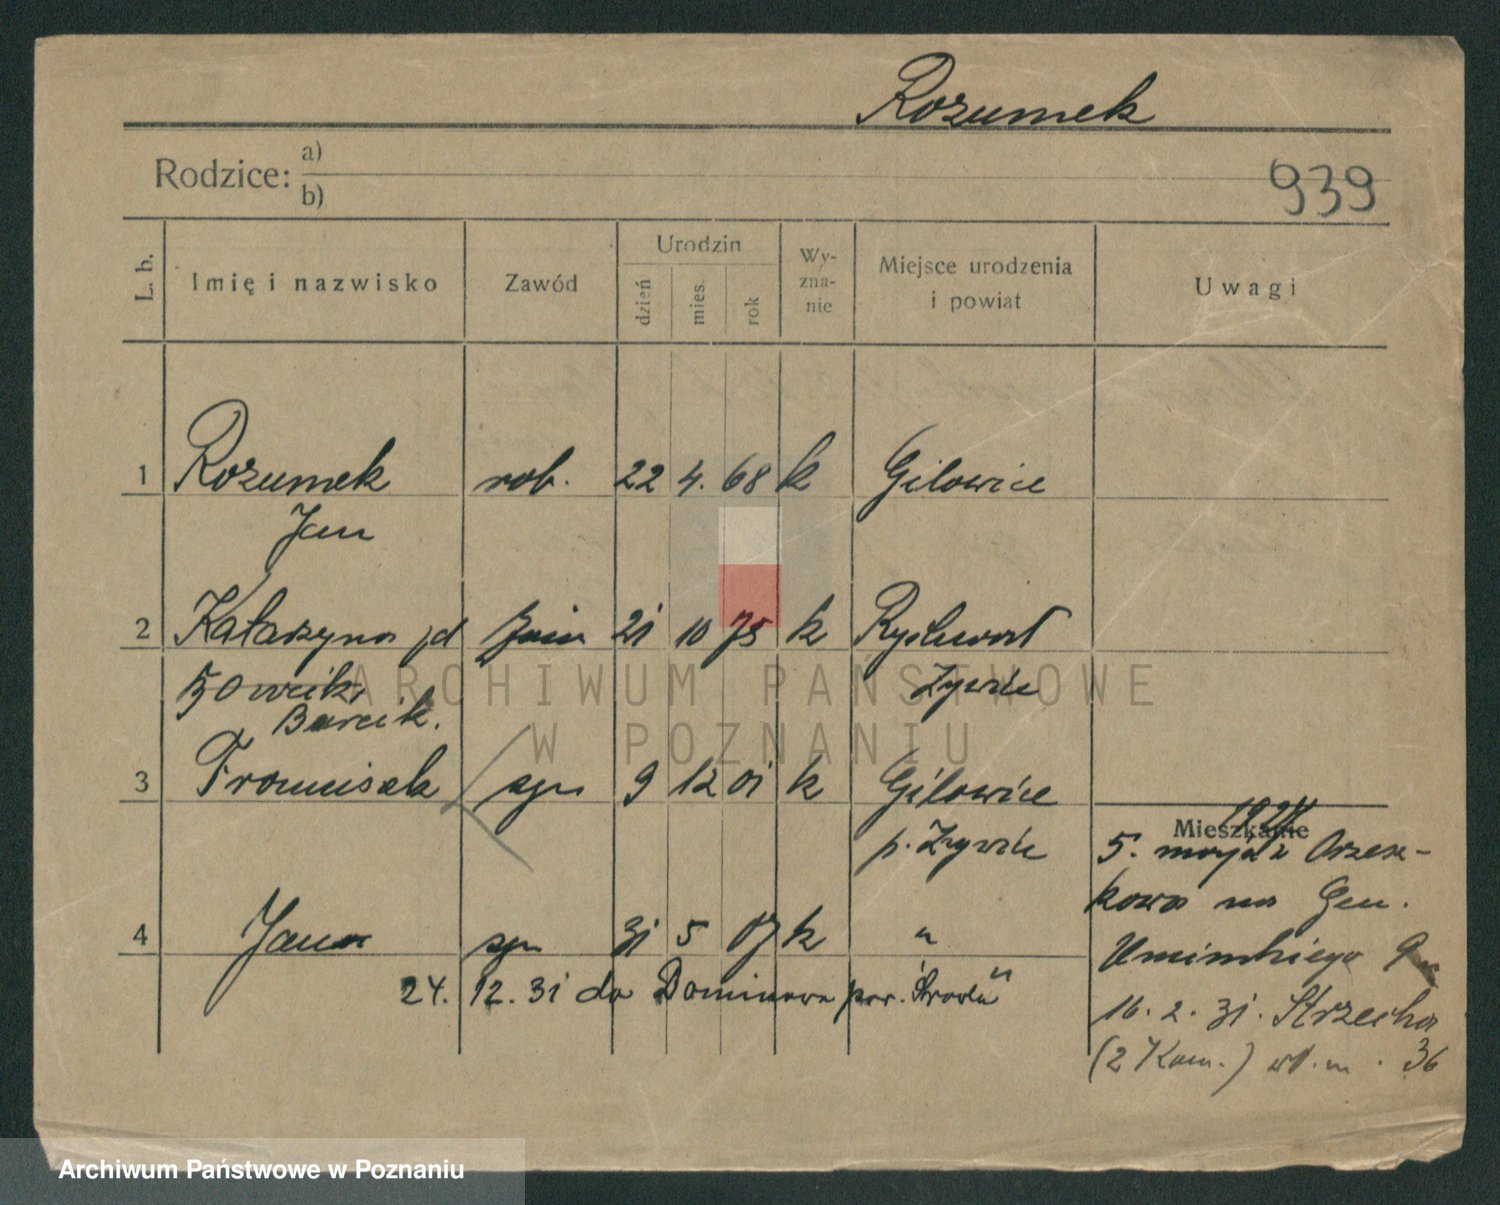 Rozumek
Rodzice: a)
b)
939
L. b. Imię i nazwisko Zawód Urodzin dzień mies. rok Wyznanie Miejsce urodzenia i powiat Uwagi
1 Rozumek rob. 22 4. 68 k Gilowice
Jan
2 Katarzyna żona 21 10 75 k Rychwałd
Żywiec
Barcik.
3 Franciszek syn 9 12 01 k Gilowice
p. Żywiec
4 Jan syn 31 5 07 k "
24. 12. 31 do Dominowa pow. Środa
1924
Mieszkanie
5. maja z Orzesz-
kowa na Gen.
Umińskiego 9
16. 2. 31. Strzecha
(2 Kom.) m. 36
ARCHIWUM PAŃSTWOWE
W POZNANIU
Archiwum Państwowe w Poznaniu